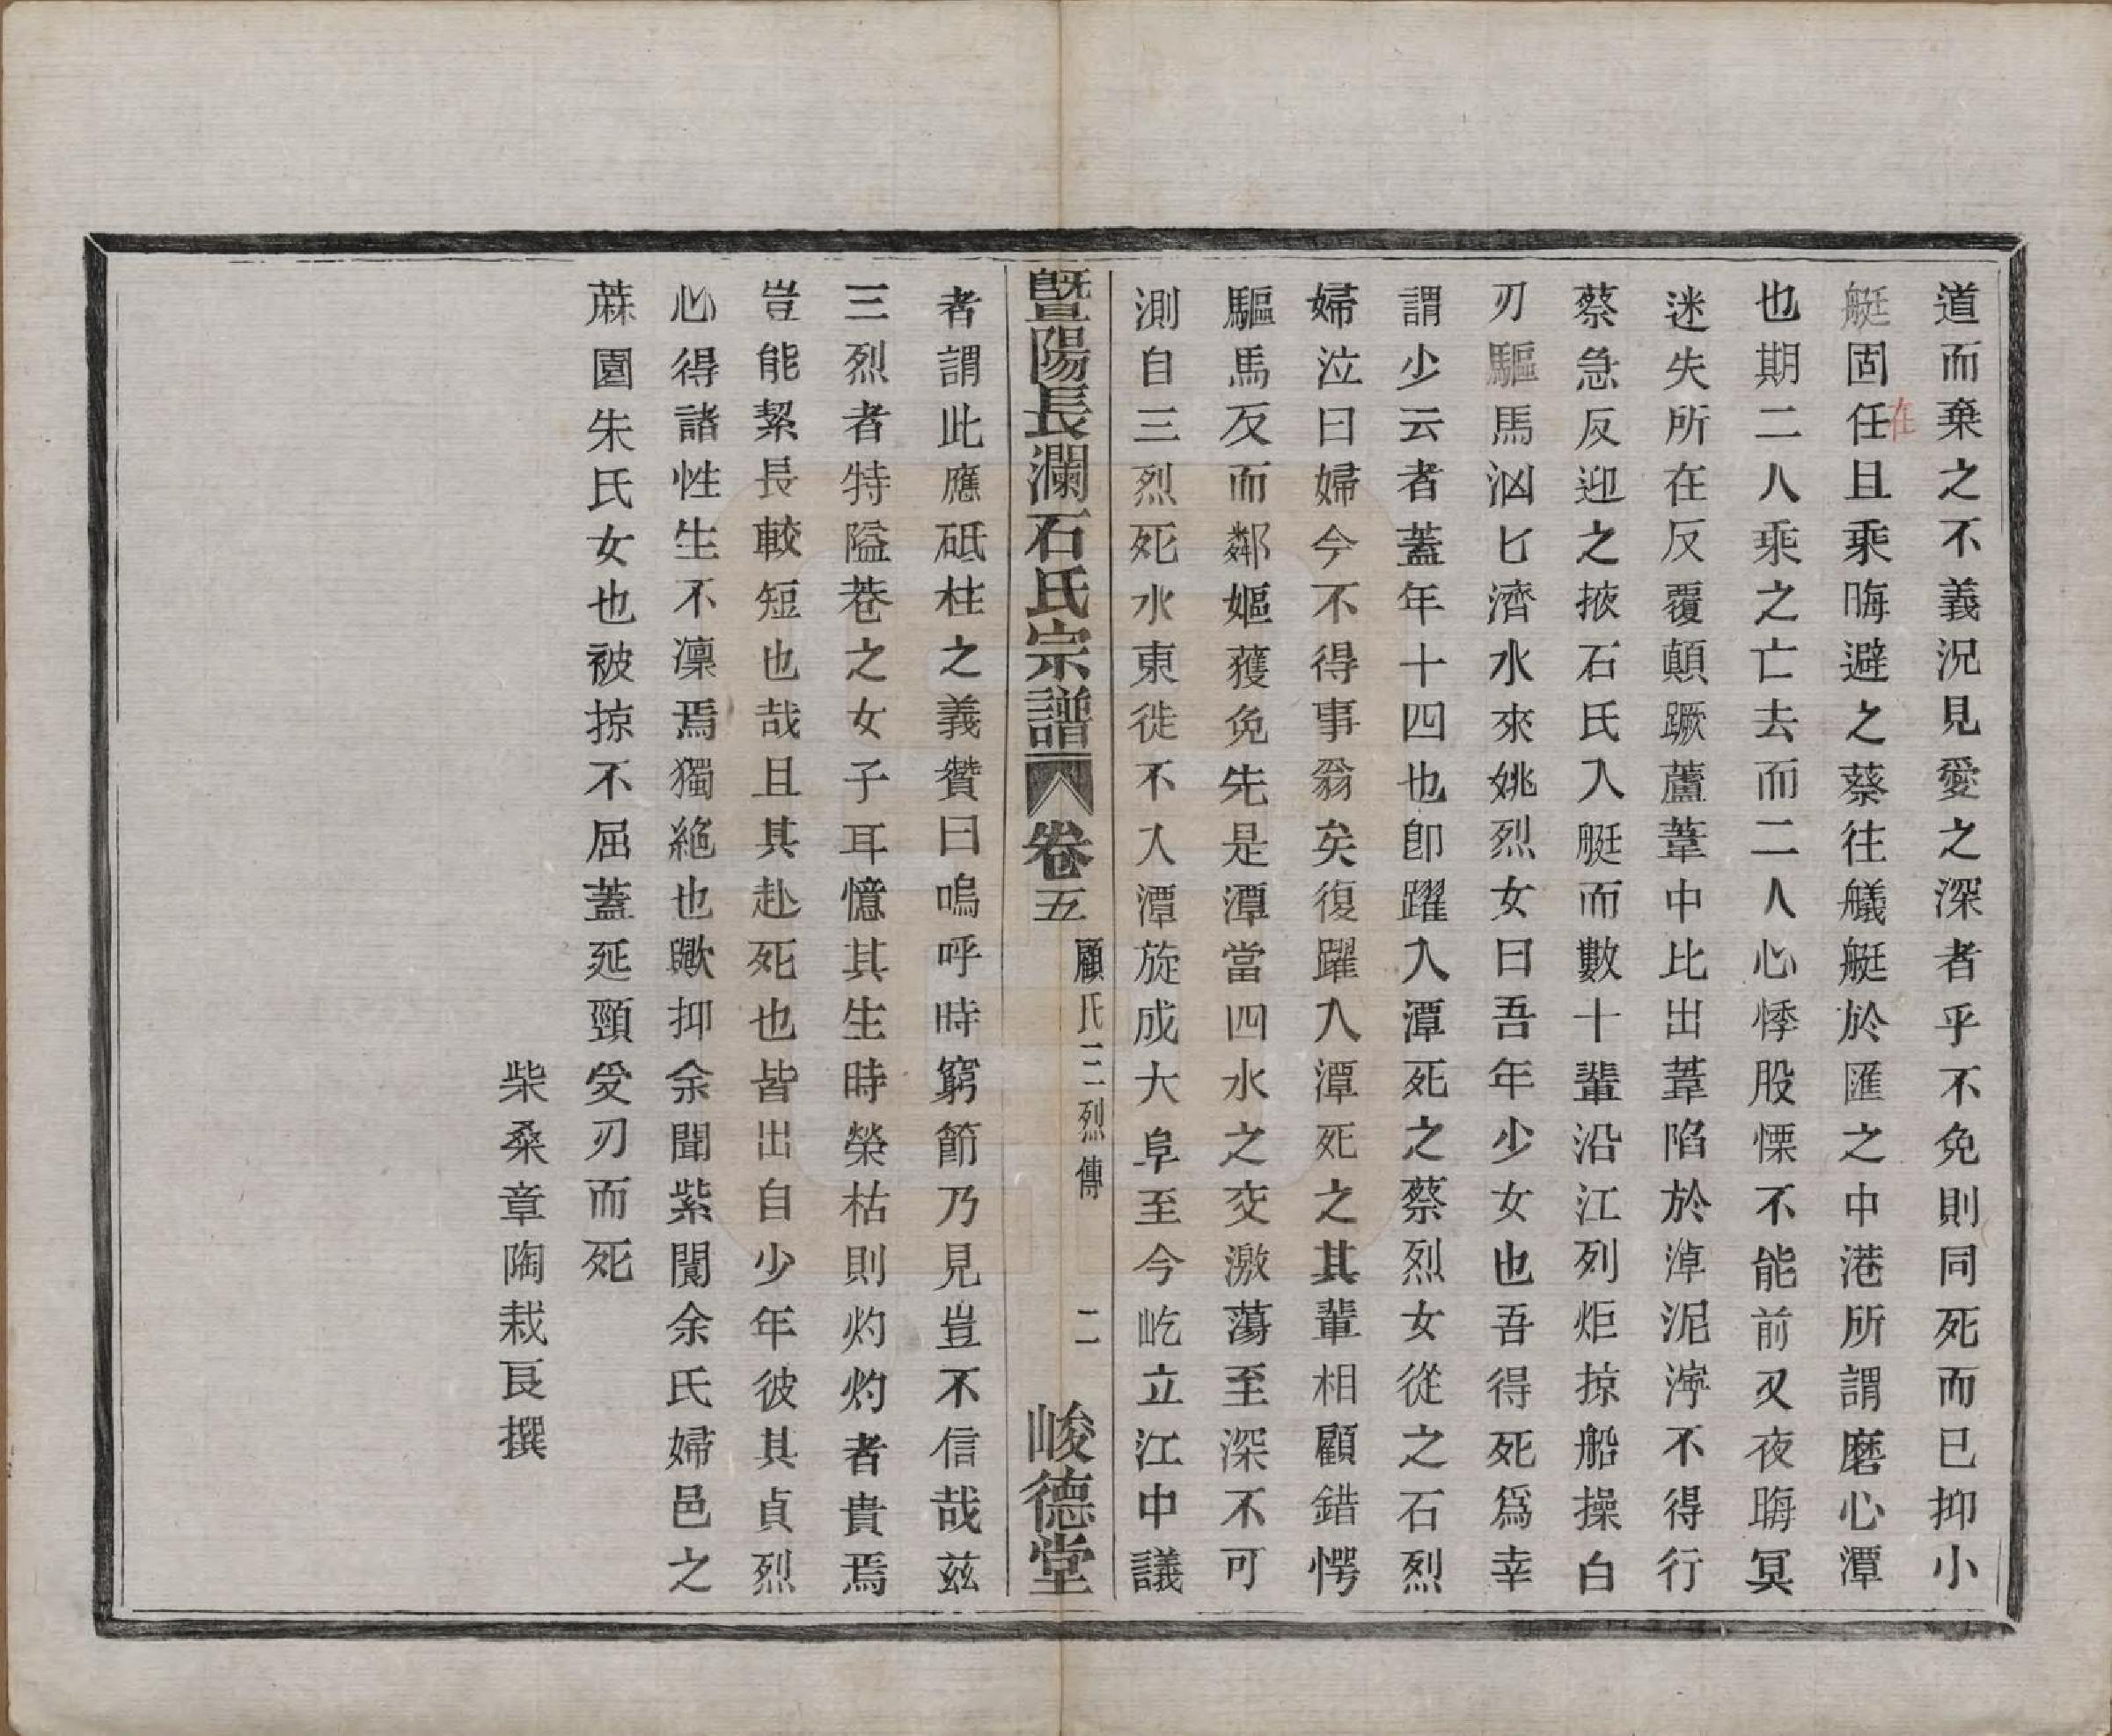 道而棄之不義況見愛之深者乎不免則同死而已抑小
艇固任且乘晦避之蔡往艤艇於匯之中港所謂磨心潭
在
也期二人乘之亡去而二人心悸股慄不能前又夜晦冥
迷失所在反覆顛蹶蘆葦中比出葦陷於淖泥濘不得行
蔡急反迎之掖石氏入艇而數十輩沿江列炬掠船操白
刃驅馬汹匕濟水來姚烈女曰吾年少女也吾得死爲幸
謂少云者蓋年十四也卽躍入潭死之蔡烈女從之石烈
婦泣曰婦今不得事翁矣復躍入潭死之其輩相顧錯愕
驅馬反而鄰嫗獲免先是潭當四水之交激蕩至深不可
測自三烈死水東徙不入潭旋成大阜至今屹立江中議
暨陽長瀾石氏宗譜 卷五 顧氏三烈傳 二 峻德堂
者謂此應砥柱之義贊曰嗚呼時窮節乃見豈不信哉茲
三烈者特隘巷之女子耳憶其生時榮枯則灼灼者貴焉
豈能絜長較短也哉且其赴死也皆出自少年彼其貞烈
心得諸性生不凜焉獨絶也歟抑余聞紫閬余氏婦邑之
蔴園朱氏女也被掠不屈蓋延頸受刃而死
柴桑章陶栽艮撰